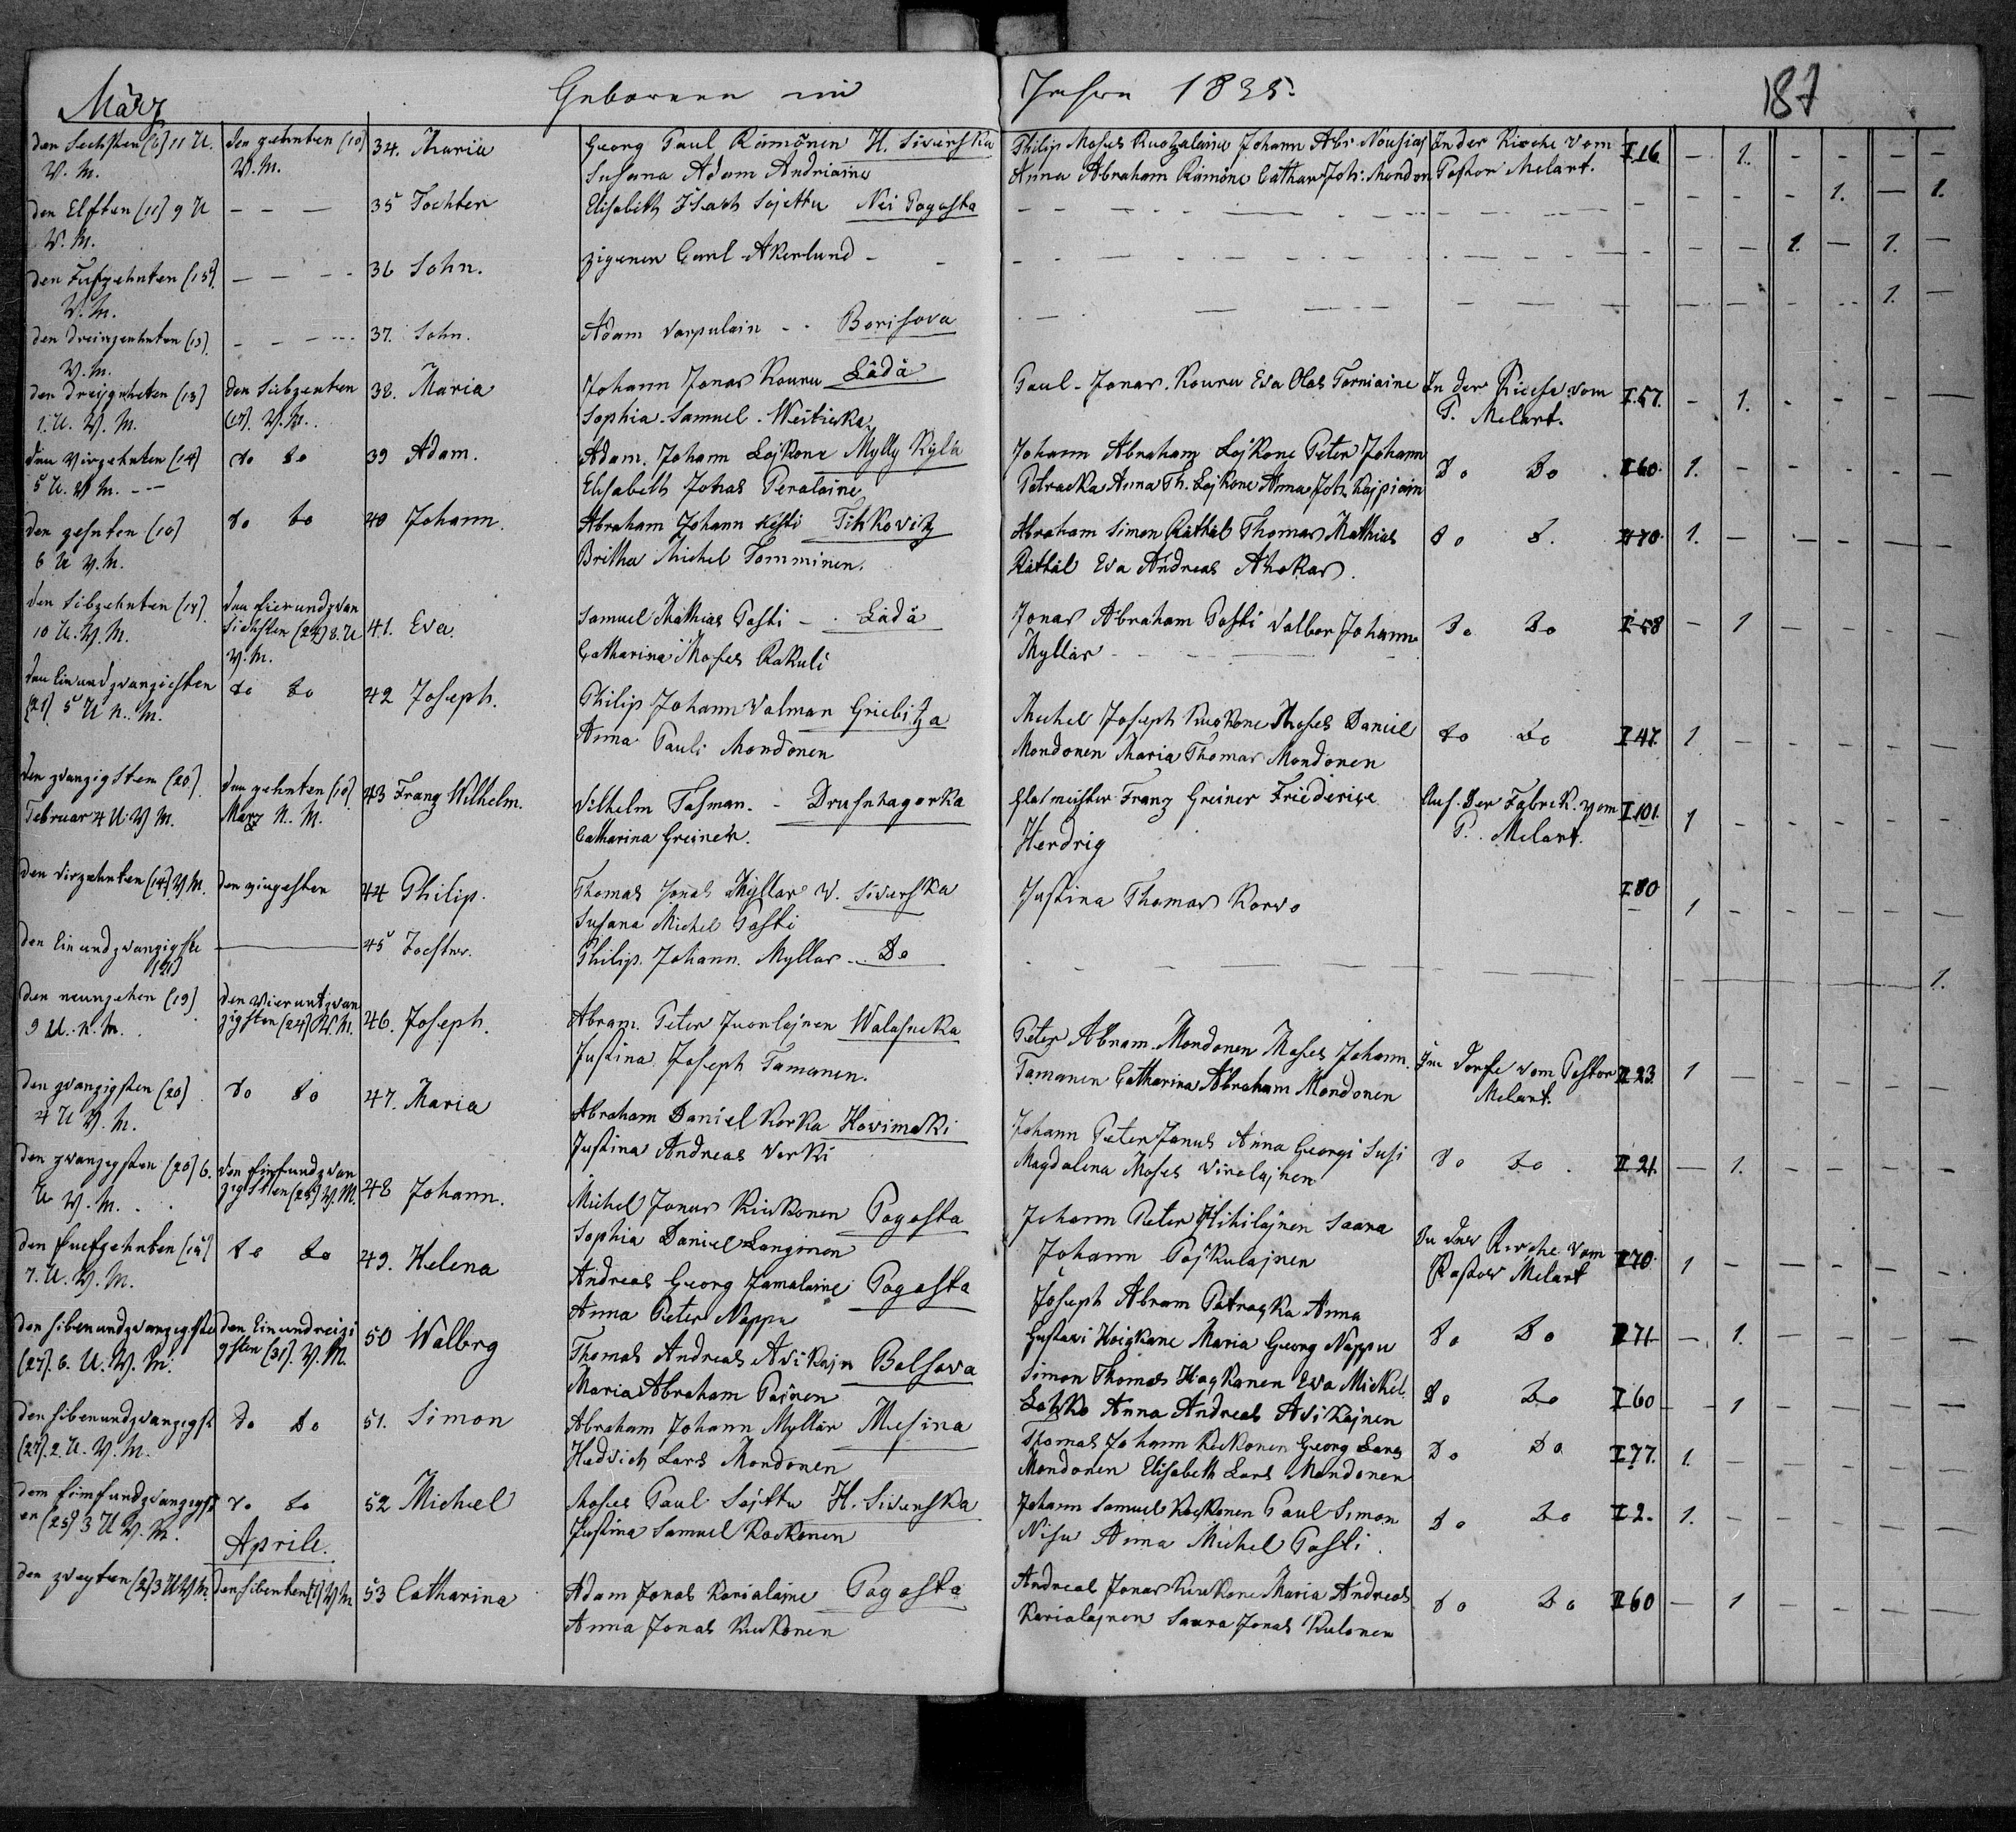 März Geborenen im Jahre 1835. 187
den Sechsten (6) 11 U. den zehnten (10) 34. Maria Georg Paul Rämönen H. Siverska Philip Moses Johann Abr Nousias In der Kirche vom I 16 - 1. - - - -
V. M. V. M. Susana Adam Andriaine Anna Abraham Rämöne Cathar Joh: Mondon Pastor Melart.
den Elften (11) 9 U - - - 35 Tochter Elisabeth Isach Sojettu Nei Pogosta - - - - 1. - 1.
V. M.
den Fufzehnten (15) - - - 36 Sohn. zigenen Carl Akerlund - - - - - 1. - 1. -
V. M.
den Dreinzenhnten (13) - - - 37. Sohn. Adam Varpulain - - Borisova - - - - 1. -
V. M.
den Dreizenheten (13) den Siebzenten 38. Maria Johann Jonas Kouru Lädä Paul Jonas Kouru Eva Olas Torniaine In der Kirche vom I. 57. - 1. - - - -
1. U. V. M. (17). V. M. Sophia Samuel P. Melart.
den Virzehnten (14) do do 39 Adam. Adam. Johann Lojkone Mylly Kylä Johann Abraham Lojkone Peter Johann Do Do I 60 1. - - - - -
5 U. V M. -- Elisabeth Jonas Peralaine Potracka Anna Th. Lojkone Anna Joh.
den zehnten (10) do do 40 Johann. Abraham Johann Kesti Tihkovitz Abraham Simon Rättäl Thomas Mathias Do D. II 70 1. - - - - -
6 U V. M. Britha Michel Tomminen. Rättäl Eva Andreas Ahokas.
den Sibzehnten (17). den fierundzvan 41. Eva. Samuel Mathias Posti - . Lädä Jonas Abraham Posti Valbor Johann Do Do I 58 - 1 - - - -
10 U. V. M. Sichsten (24) 8. U Catharina Moses Rakuli Myllär
V. M.
den Einundzvanzichsten do do 42 Joseph. Philip Johann Valman Griebitza Michel Joseph Kuokone Moses Daniel do Do I 47. 1 - - - - -
(21) 5 U N. M. Anna Pauli Mondonen Mondonen Maria Thomas Mondonen
den zvanzigsten (20). den zehnten (10) 43 Franz Wilhelm. Vilhelm Tasman. - Drusnhagorka Glasmeister Franz Greiner Friederice Auf der Fabrik. vom I 101. 1 - - - - -
Februar 4 U. V M. Marz N. M. Catharina Greiner. Herdrig P. Melart.
den Virzehnten (14). V M. 44 Philip. Thomas Jonas Myllar V. Siverska Justina Thomas Korvo I 80 1 - - - - -
Susana Michel Posti
den Einundzvanzigste ——— 45 Tochter. Philip. Johann. Myllar - Do - - - - - 1.
(21)
den neunzehen (19) den Vieruntzvan 46. Joseph. Abram. Peter Juonlajnen Walasneka Peter Abram. Mondonen Moses Johann. Im Dorfe vom Pastor II 23. 1 - - - - -
9 U. N. M. zigsten (24) N. M. Justina Joseph Tamanen. Tamanen Catharina Abraham Mondonen Melart.
den zvanzigsten (20) do do 47. Maria Abraham Daniel Korka Hovimäki Johann Peter Janus Anna Georgi Susi Do Do. II 21. - 1. - - - -
4 U V. M. Justina Andreas Verki Magdalena Moses Virolajnen
den zvanzigsten (20) 6. den finfundzvan 48 Johann. Michel Jonas Kiukonen Pogosta Johann Peter Hihilajnen Saara In der Kirche vom I 70. 1 - - - - -
U V. M. zigsten (25) V. M. Sophia Daniel Langinen Johann Pojkulajnen Pastor Melart
den fuefzehnten (15) do do 49. Helena Andreas Georg Jamalaine Pogosta Joseph Abram Potraska Anna Do Do II 71 - 1. - - - -
7. U. V. M. Anna Peter Nappu Gustavi Maria Georg Nappu
den sibenundzvanzigste den Einundreizi 50 Walbrg Thomas Andreas Avikajn Bolsova Simon Thomas Eva Michel. Do Do I 60 - 1 - - - -
(27). 6. U. V. M. gsten (31). V. M. Maria Abraham Pajnen Anna Andreas Avikajnen
den sibenundzvanzigst do do 51. Simon Abraham Johann Myllär Mesina Thomas Johann Kukonen Georg Lars Do Do I 77. 1. - - - - -
(27). 2. U. V. M. Hedvich Lars Mondonen Mondonen Elisabeth Lars Mondonen
dem finfundzvanzigst do do 52 Michel Moses Paul Sojettu H. Siverska Johann Samuel Kockonen Paul Simon Do Do I 2. 1. - - - - -
en (25) 3 U V. M. Justina Samuel Kockonen Nisu Anna Michel Posti.
Aprill.
den zveyten (2) 3 U V M. den sibenten (7) V M 53 Catharina Adam Jonas Karialajne Pogosta Andreas Jonas Kukone Maria Andreas Do Do II 60 - 1 - - - -
Anna Jonas Kukonen Karialajnen Saara Jonas Kulonen